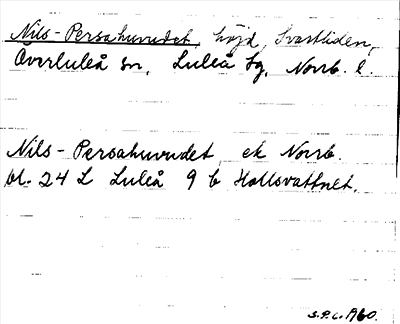 Nils-Persahuvudet, höjd, Svartliden,
Överluleå sn, Luleå tg, Norrb. l.
Nils-Persahuvudet ek Norrb.
bl. 24 L Luleå 9 b Hallsvattnet.
S.P.L. 1960.